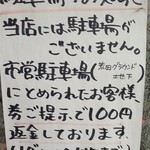 当店には駐車場が
ございません。
市営駐車場(荒田グラウンド地下)
にとめられたお客様
券ご提示で100円
返金しております。